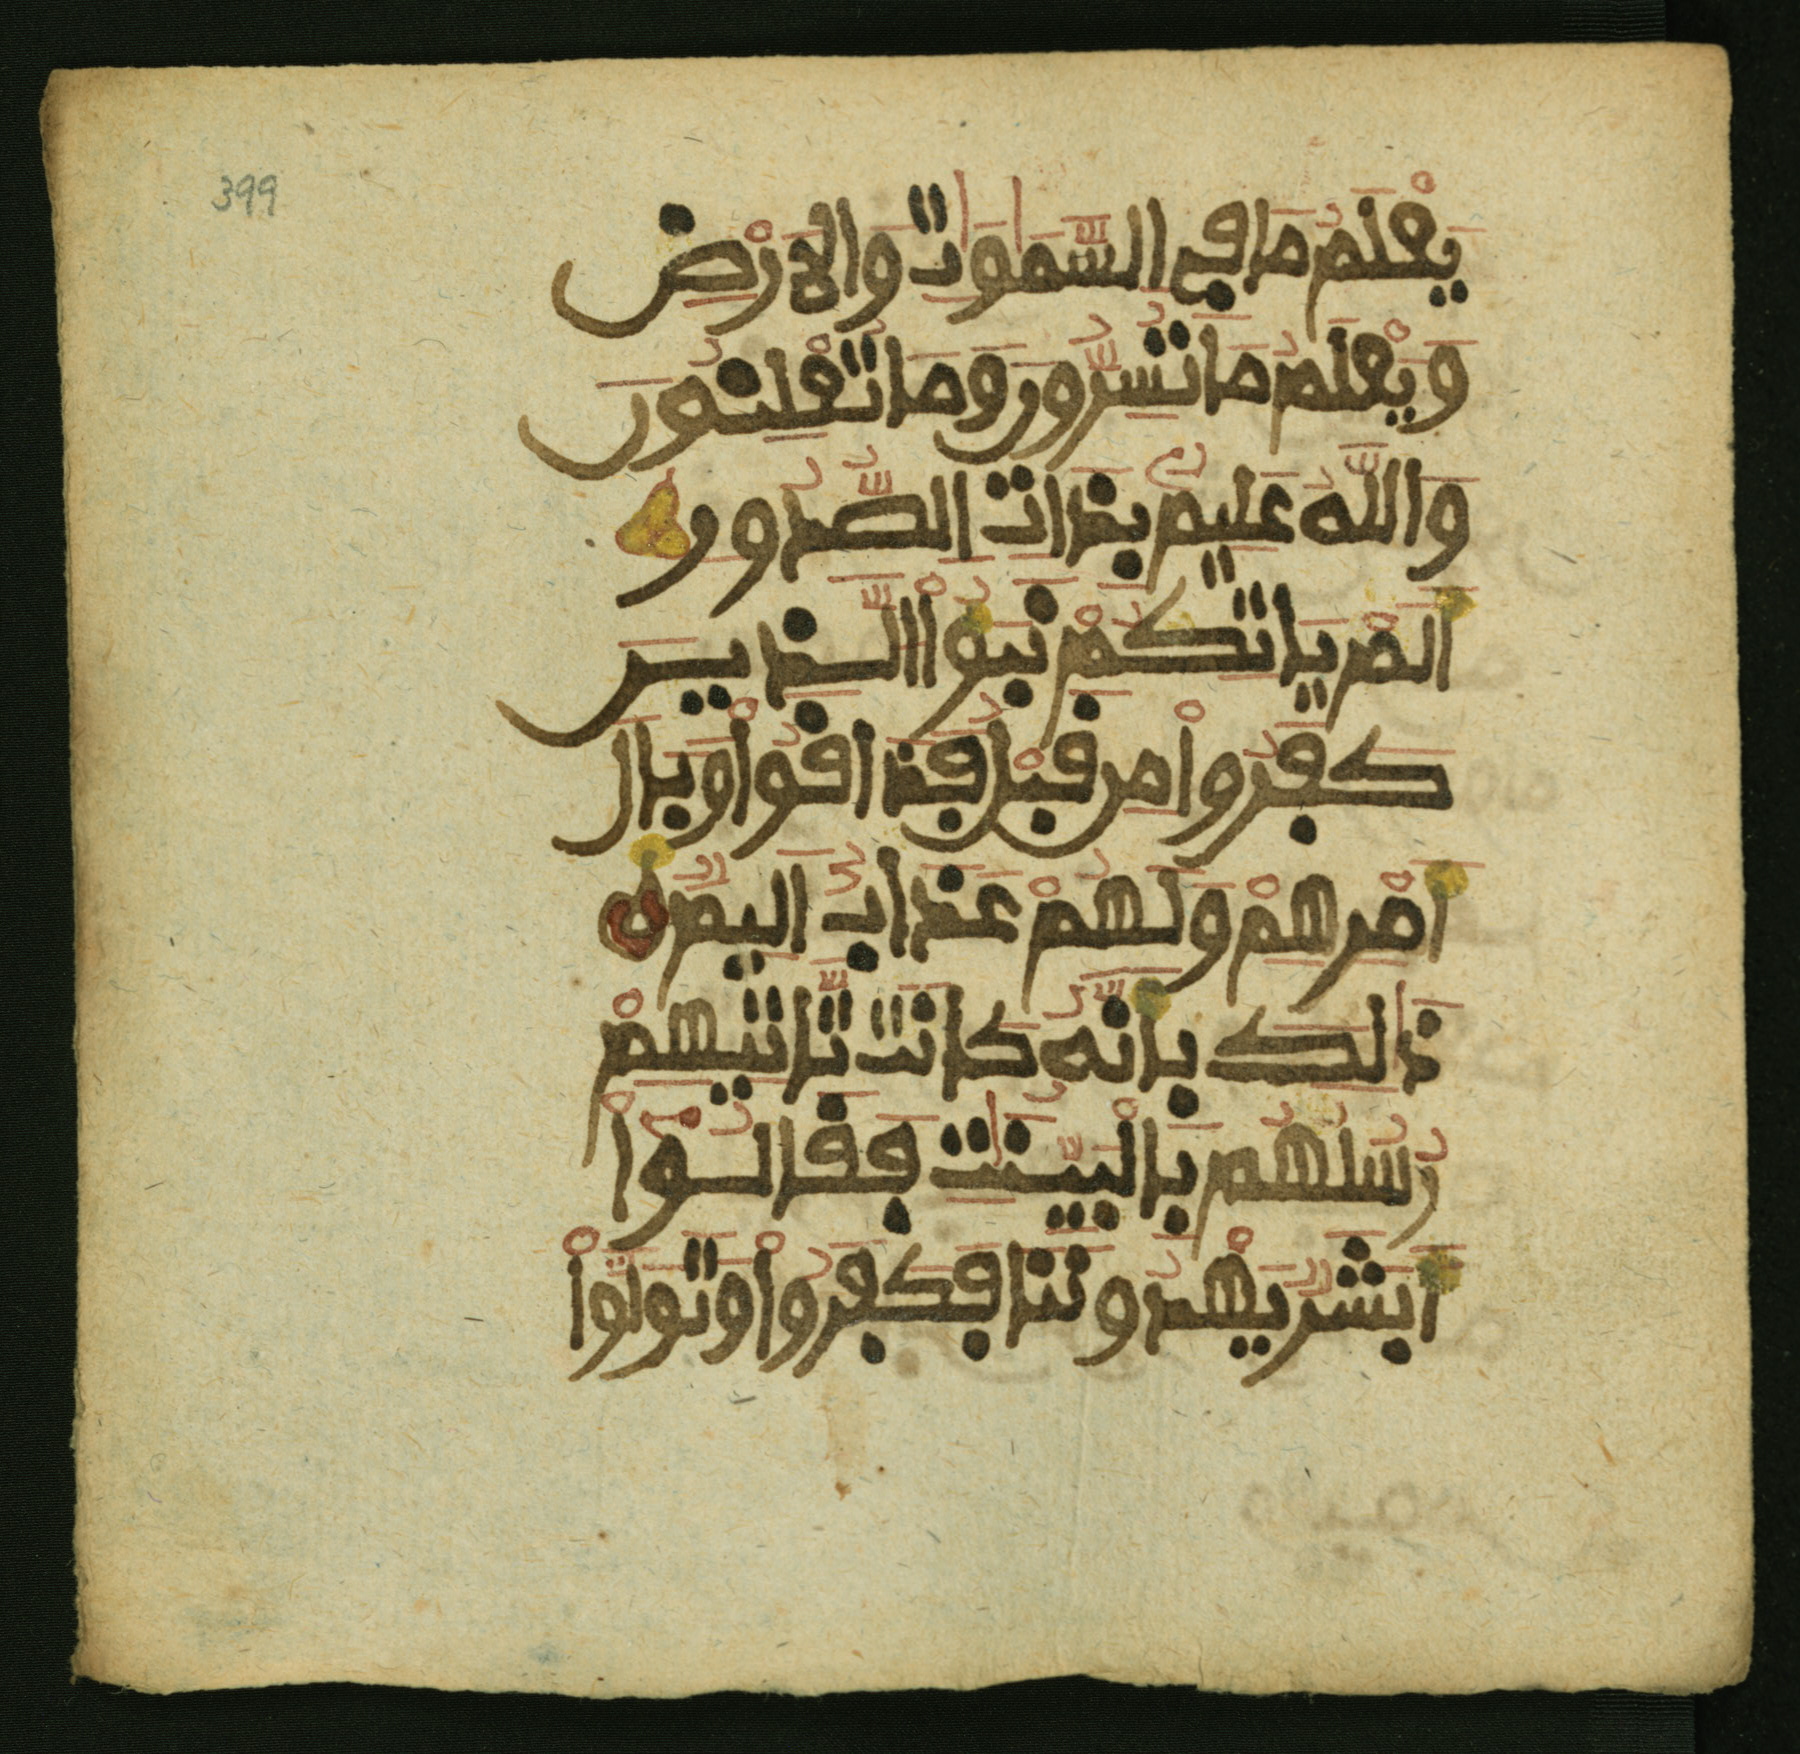 399
يَعْلَمُ مَا فِي السَّمَٰوَٰتِ وَالَارْضِ
وَيَعْلَمُ مَا تُسِرُّونَ وَمَا تُعْلِنُونَ
وَاللَّهُ عَلِيمٌ بِذَاتِ الصُّدُورِ
أَلَمْ يَاتِكُمْ نَبَؤُاْ الَّذِينَ
كَفَرُواْ مِن قَبْلُ فَذَاقُواْ وَبَالَ
أَمْرِهِمْ وَلَهُمْ عَذَابٌ اَلِيمٌ
ذَٰلِكَ بِأَنَّهُ كَانَت تَّاتِيهِمْ
رُسُلُهُم بِالْبَيِّنَٰتِ فَقَالُواْ
أَبَشَرٌ يَهْدُونَنَا فَكَفَرُواْ وَتَوَلَّواْ